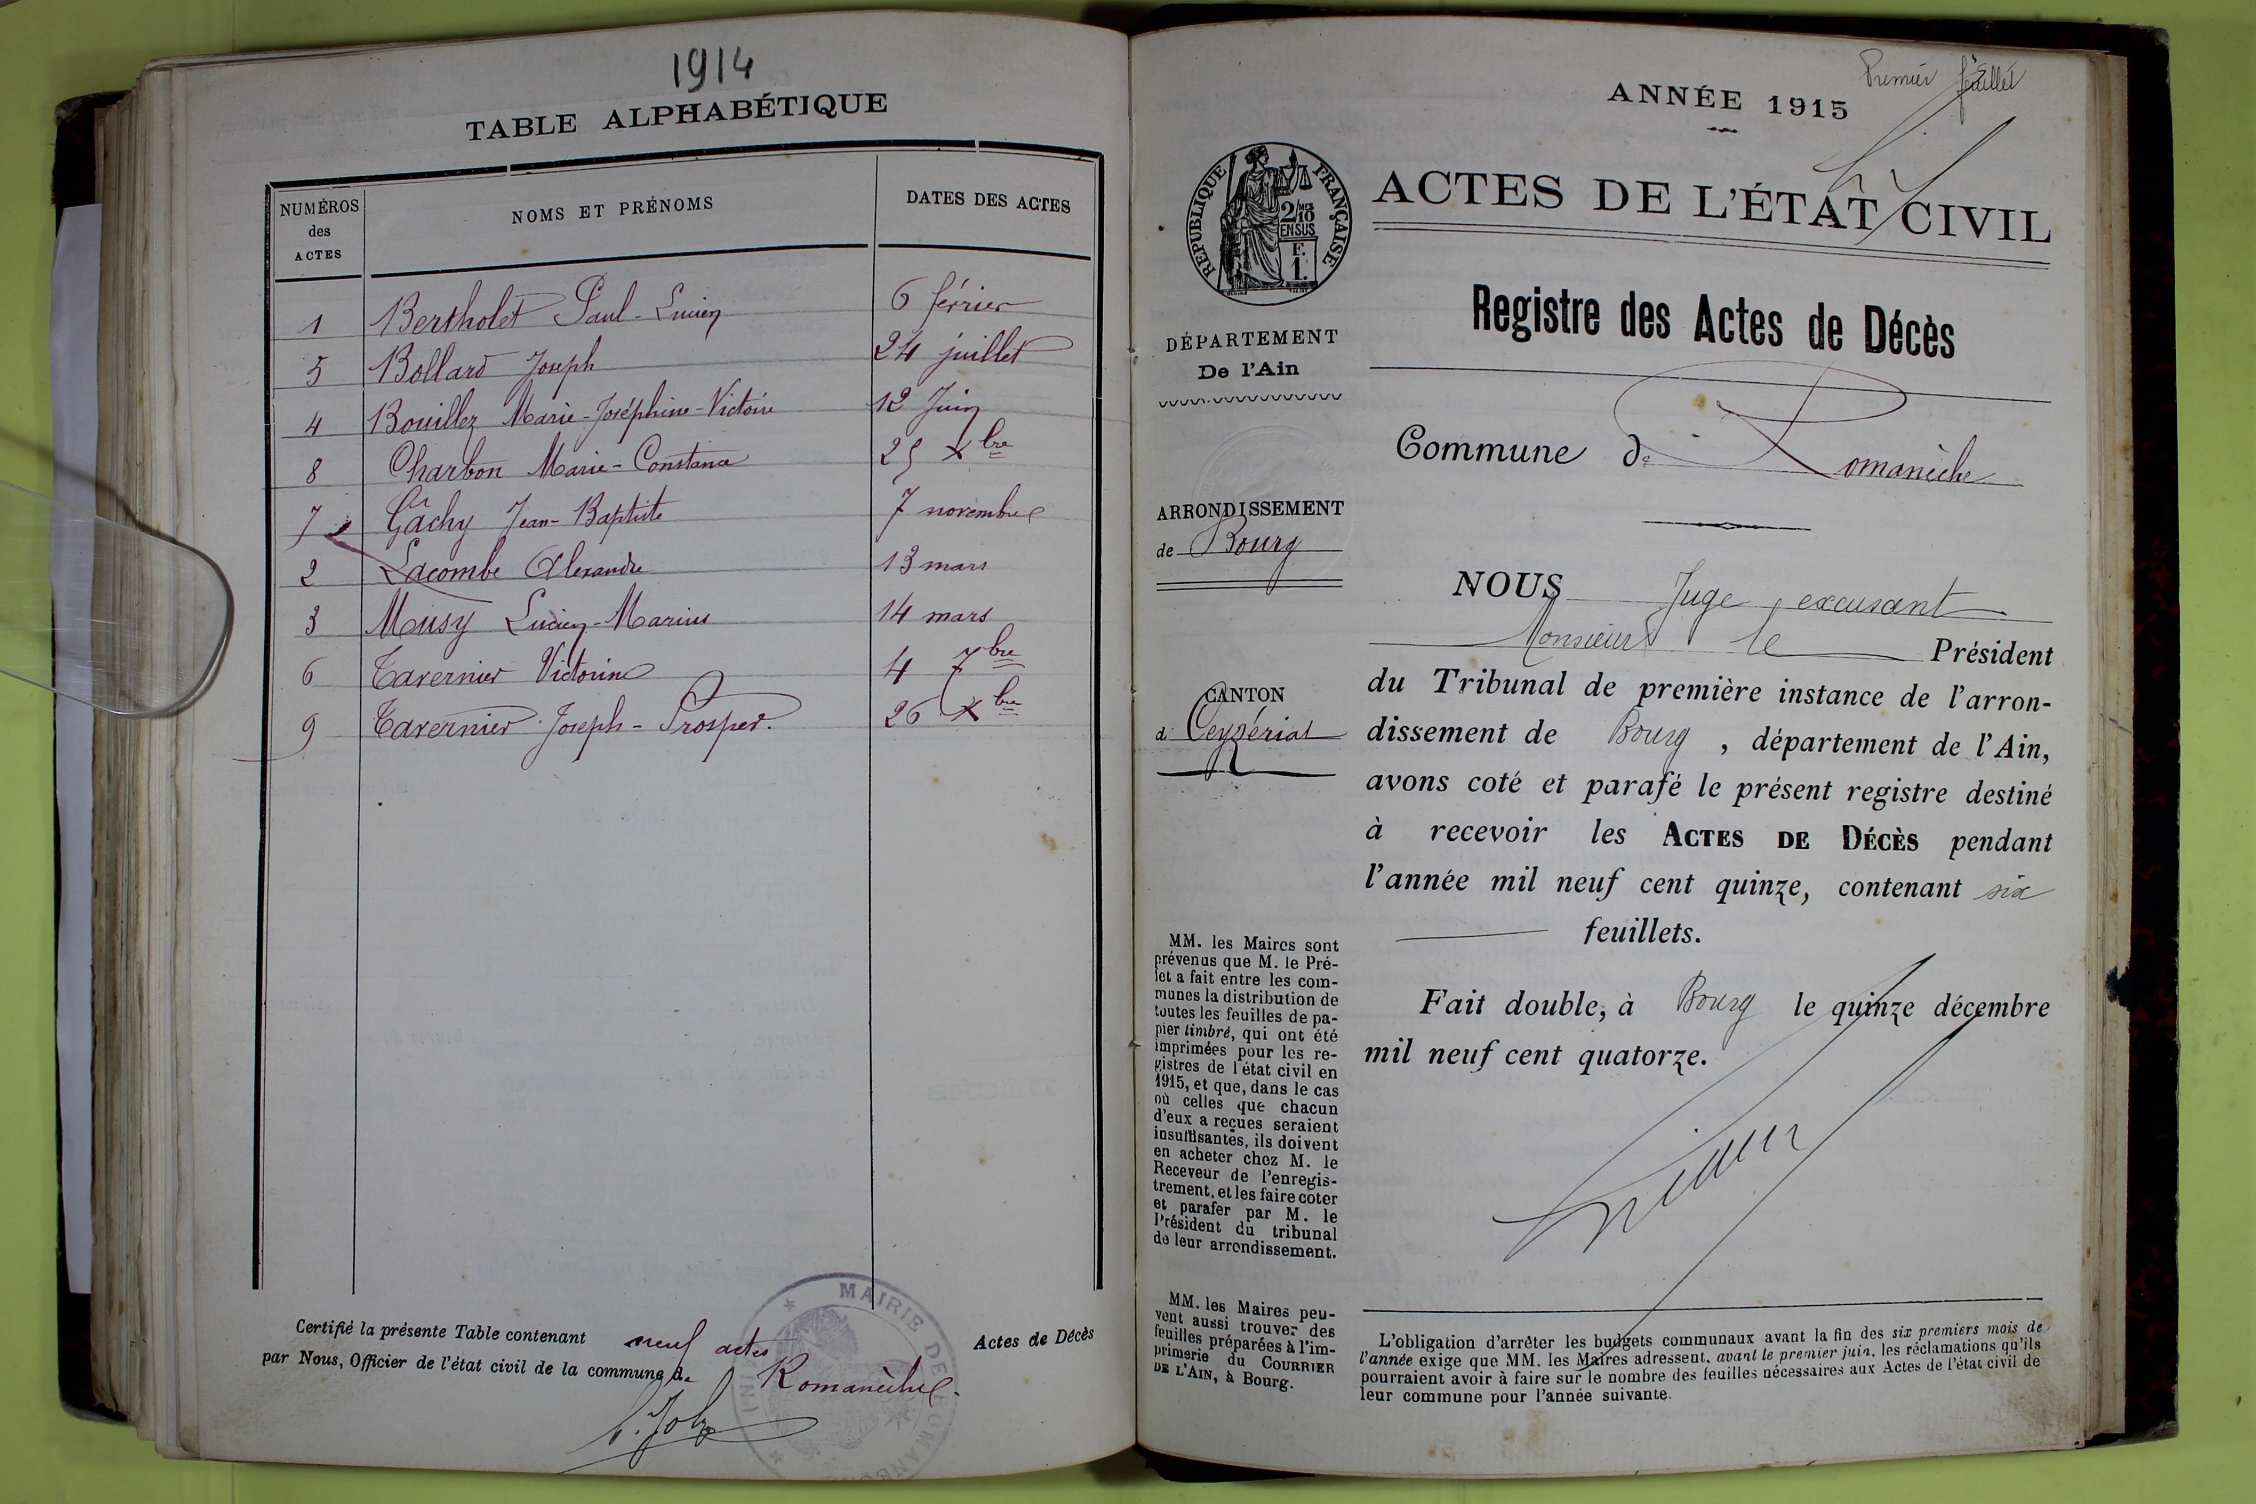 1914
TABLE ALPHABÉTIQUE
NUMÉROS des ACTES
NOMS ET PRÉNOMS
DATES DES ACTES
1 Bertholet Paul-Lucien 6 février
5 Bollard Joseph 24 juillet
4 Bouillez Marie-Joséphine-Victoire 12 Juin
8 Charbon Marie-Constance 25 Xbre
7 Gâchy Jean-Baptiste 7 novembre
2 Lacombe Alexandre 13 mars
3 Musy Lucien-Marius 14 mars
6 Tavernier Victorine 4 7bre
9 Tavernier Joseph-Prosper. 26 Xbre
Certifié la présente Table contenant neuf actes Actes de Décès
par Nous, Officier de l'état civil de la commune de Romanèche.
MAIRIE DE ROMANÈCHE
Premier feuillet
ANNÉE 1915
ACTES DE L'ÉTAT CIVIL
RÉPUBLIQUE FRANÇAISE
2/10 MES
EN SUS
F.
1.
DÉPARTEMENT
De l'Ain
ARRONDISSEMENT
de Bourg
CANTON
d. Ceyzériat
MM. les Maires sont
prévenus que M. le Pré-
fet a fait entre les com-
munes la distribution de
toutes les feuilles de pa-
pier timbré, qui ont été
imprimées pour les re-
gistres de l'état civil en
1915, et que, dans le cas
où celles que chacun
d'eux a reçues seraient
insuffisantes, ils doivent
en acheter chez M. le
Receveur de l'enregis-
trement, et les faire coter
et parafer par M. le
Président du tribunal
de leur arrondissement.
MM. les Maires peu-
vent aussi trouver des
feuilles préparées à l'im-
primerie du COURRIER
DE L'AIN, à Bourg.
Registre des Actes de Décès
Commune de Romanèche
NOUS Juge excusant
Monsieur le Président
du Tribunal de première instance de l'arron-
dissement de Bourg, département de l'Ain,
avons coté et parafé le présent registre destiné
à recevoir les ACTES DE DÉCÈS pendant
l'année mil neuf cent quinze, contenant six
feuillets.
Fait double, à Bourg le quinze décembre
mil neuf cent quatorze.
L'obligation d'arrêter les budgets communaux avant la fin des six premiers mois de
l'année exige que MM. les Maires adressent, avant le premier juin, les réclamations qu'ils
pourraient avoir à faire sur le nombre des feuilles nécessaires aux Actes de l'état civil de
leur commune pour l'année suivante.